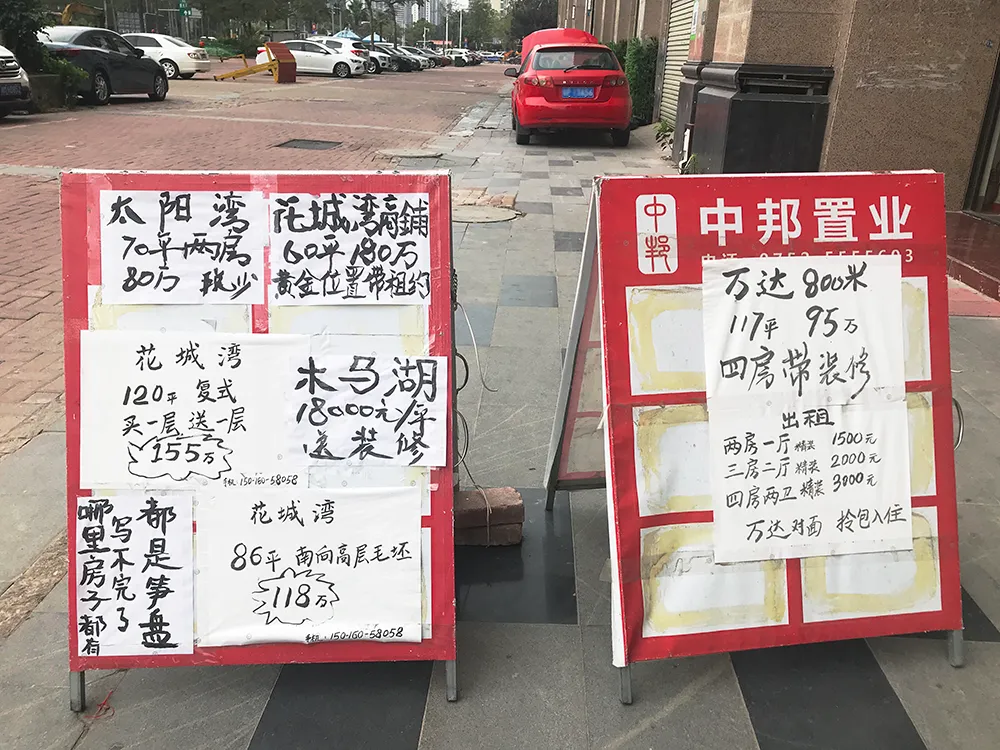 太阳湾
70平两房
80万 税少
花城湾商鋪
60平180万
黄金位置带租约
花城湾
120平 复式
买一层送一层
155万
手机:150-160-58058
木马湖
18000元/平
送装修
都是笋盘
写不完了
哪里房子都有
花城湾
86平 南向高层毛坯
118万
手机:150-160-58058
中邦
中邦置业
万达800米
117平 95万
四房带装修
出租
两房一厅 精装 1500元
三房二厅 精装 2000元
四房两卫 精装 3000元
万达对面 拎包入住